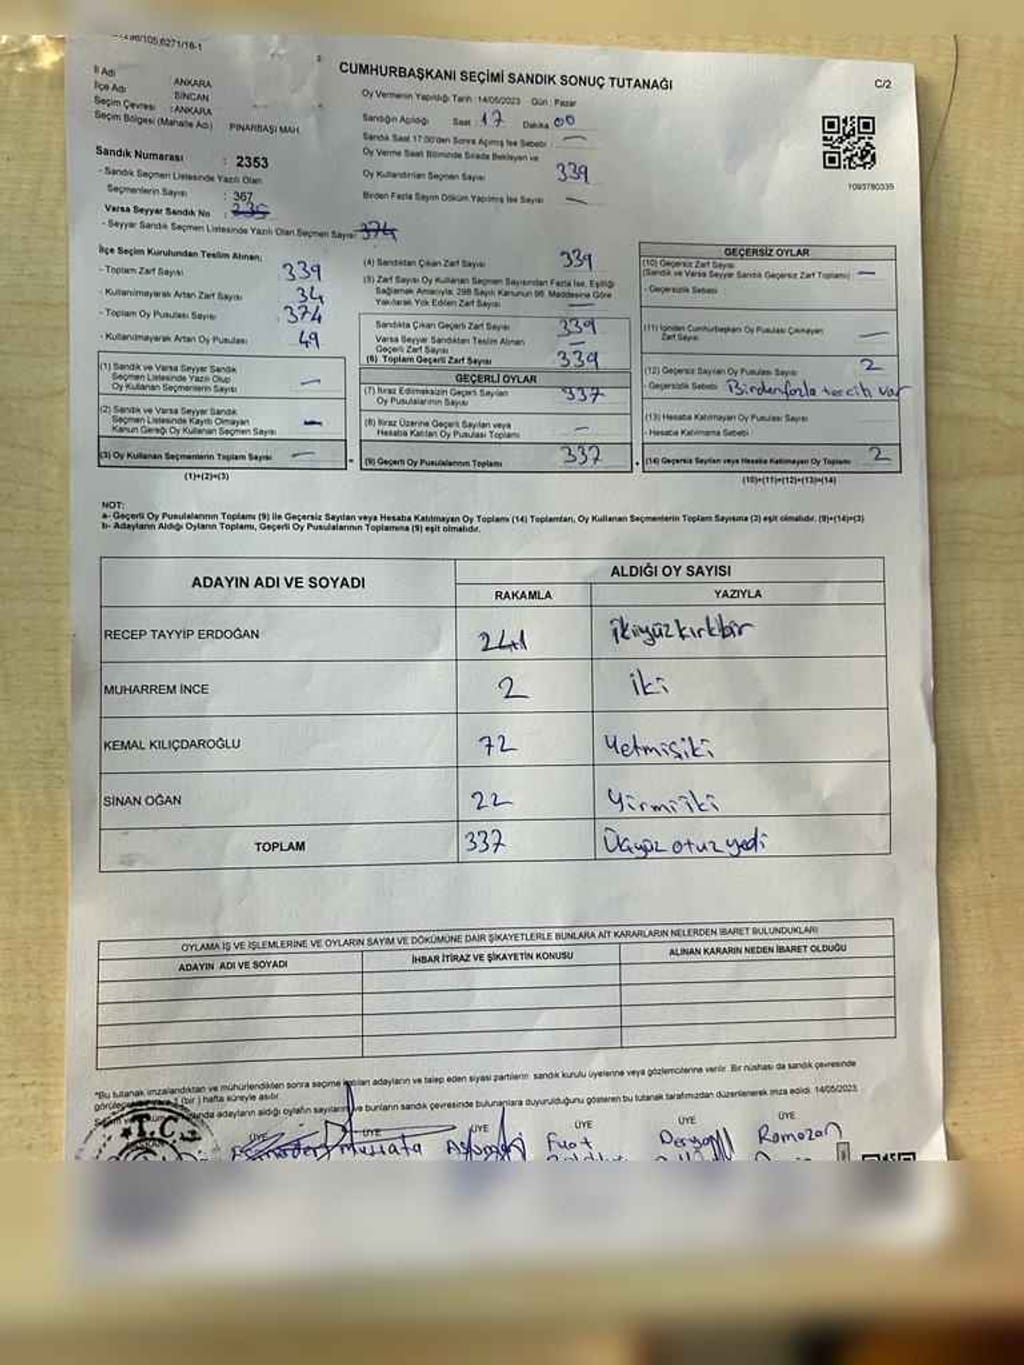 CUMHURBAŞKANI SEÇİMİ SANDIK SONUÇ TUTANAĞI
C/2
İl Adı ANKARA
İlçe Adı SİNCAN
Seçim Çevresi : ANKARA
Seçim Bölgesi (Mahalle Adı) PINARBAŞI MAH.
Sandık Numarası : 2353
- Sandık Seçmen Listesinde Yazılı Olan
Seçmenlerin Sayısı : 367
Varsa Seyyar Sandık No :
- Seyyar Sandık Seçmen Listesinde Yazılı Olan Seçmen Sayısı 374
Oy Vermenin Yapıldığı Tarih : 14/05/2023 Gün : Pazar
Sandığın Açıldığı Saat : 17 Dakika 00
Sandık Saat 17:00'den Sonra Açılmış İse Sebebi : —
Oy Verme Saati Bitiminde Sırada Bekleyen ve
Oy Kullandırılan Seçmen Sayısı 339
Birden Fazla Sayım Döküm Yapılmış İse Sayısı —
1093780335
İlçe Seçim Kurulundan Teslim Alınan;
- Toplam Zarf Sayısı 339
- Kullanılmayarak Artan Zarf Sayısı 34
- Toplam Oy Pusulası Sayısı 374
- Kullanılmayarak Artan Oy Pusulası 49
(1) Sandık ve Varsa Seyyar Sandık
Seçmen Listesinde Yazılı Olup
Oy Kullanan Seçmenlerin Sayısı —
(2) Sandık ve Varsa Seyyar Sandık
Seçmen Listesinde Kayıtlı Olmayan
Kanun Gereği Oy Kullanan Seçmen Sayısı —
(3) Oy Kullanan Seçmenlerin Toplam Sayısı —
(1)+(2)=(3)
(4) Sandıktan Çıkan Zarf Sayısı 339
(5) Zarf Sayısı Oy Kullanan Seçmen Sayısından Fazla İse, Eşitliği
Sağlamak Amacıyla; 298 Sayılı Kanunun 98. Maddesine Göre
Yakılarak Yok Edilen Zarf Sayısı —
Sandıkta Çıkan Geçerli Zarf Sayısı 339
Varsa Seyyar Sandıktan Teslim Alınan
Geçerli Zarf Sayısı —
(6) Toplam Geçerli Zarf Sayısı 339
GEÇERLİ OYLAR
(7) İtiraz Edilmeksizin Geçerli Sayılan
Oy Pusulalarının Sayısı 337
(8) İtiraz Üzerine Geçerli Sayılan veya
Hesaba Katılan Oy Pusulası Toplamı —
(9) Geçerli Oy Pusulalarının Toplamı 337
GEÇERSİZ OYLAR
(10) Geçersiz Zarf Sayısı
(Sandık ve Varsa Seyyar Sandık Geçersiz Zarf Toplamı) —
- Geçersizlik Sebebi :
(11) İçinden Cumhurbaşkanı Oy Pusulası Çıkmayan
Zarf Sayısı —
(12) Geçersiz Sayılan Oy Pusulası Sayısı 2
- Geçersizlik Sebebi : Birden fazla tercih var
(13) Hesaba Katılmayan Oy Pusulası Sayısı
- Hesaba Katılmama Sebebi :
(14) Geçersiz Sayılan veya Hesaba Katılmayan Oy Toplamı 2
(10)+(11)+(12)+(13)=(14)
NOT:
a- Geçerli Oy Pusulalarının Toplamı (9) ile Geçersiz Sayılan veya Hesaba Katılmayan Oy Toplamı (14) Toplamları, Oy Kullanan Seçmenlerin Toplam Sayısına (3) eşit olmalıdır. (9)+(14)=(3)
b- Adayların Aldığı Oyların Toplamı, Geçerli Oy Pusulalarının Toplamına (9) eşit olmalıdır.
ADAYIN ADI VE SOYADI
ALDIĞI OY SAYISI
RAKAMLA YAZIYLA
RECEP TAYYİP ERDOĞAN 241 ikiyüzkırkbir
MUHARREM İNCE 2 iki
KEMAL KILIÇDAROĞLU 72 Yetmişiki
SİNAN OĞAN 22 Yirmiiki
TOPLAM 337 Üçyüz otuz yedi
OYLAMA İŞ VE İŞLEMLERİNE VE OYLARIN SAYIM VE DÖKÜMÜNE DAİR ŞİKAYETLERLE BUNLARA AİT KARARLARIN NELERDEN İBARET BULUNDUKLARI
ADAYIN ADI VE SOYADI İHBAR İTİRAZ VE ŞİKAYETİN KONUSU ALINAN KARARIN NEDEN İBARET OLDUĞU
"Bu tutanak imzalandıktan ve mühürlendikten sonra seçime katılan adayların ve talep eden siyasi partilerin sandık kurulu üyelerine veya gözlemcilerine verilir. Bir nüshası da sandık çevresinde
(bir) hafta süreyle asılır.
adayların aldığı oyların sayılarını ve bunların sandık çevresinde bulunanlara duyurulduğunu gösteren bu tutanak tarafımızdan düzenlenerek imza edildi. 14/05/2023
T.C.
ÜYE ÜYE ÜYE ÜYE ÜYE ÜYE
Mustafa Fuat Derya Ramazan